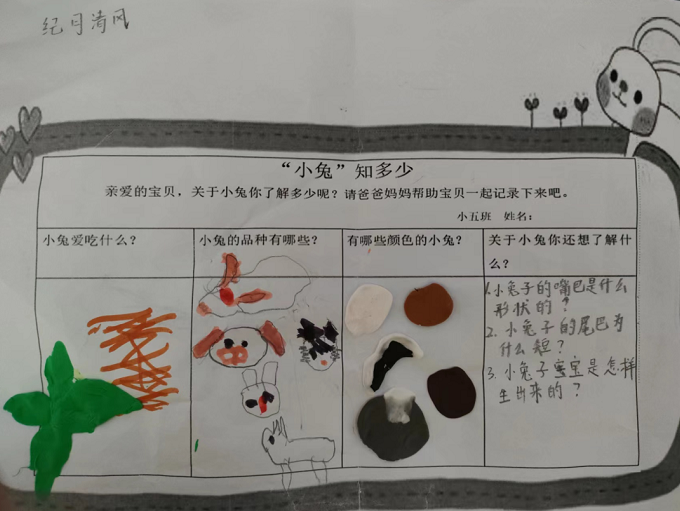 纪月清风
“小兔”知多少
亲爱的宝贝，关于小兔你了解多少呢？请爸爸妈妈帮助宝贝一起记录下来吧。
小五班 姓名：
小兔爱吃什么？
小兔的品种有哪些？
有哪些颜色的小兔？
关于小兔你还想了解什
么？
1.小兔子的嘴巴是什么
形状的？
2.小兔子的尾巴为
什么短？
3.小兔子宝宝是怎样
生出来的？